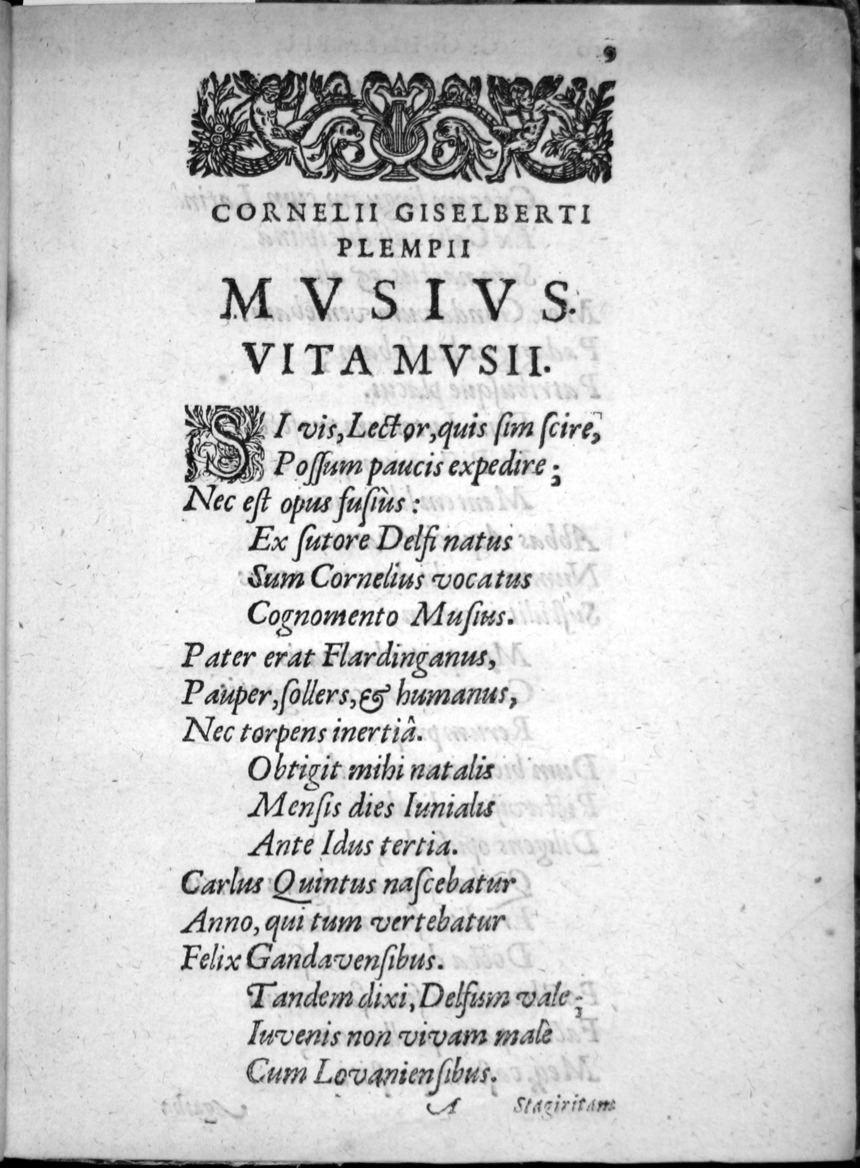 9
CORNELII GISELBERTI
PLEMPII
MVSIVS.
VITA MVSII.
SI vis, Lector, quis ſim ſcire,
Poſſum paucis expedire;
Nec eſt opus fuſiùs:
Ex ſutore Delfi natus
Sum Cornelius vocatus
Cognomento Muſius.
Pater erat Flardinganus,
Pauper, ſollers, & humanus,
Nec torpens inertiâ.
Obtigit mihi natalis
Menſis dies Iunialis
Ante Idus tertia.
Carlus Quintus naſcebatur
Anno, qui tum vertebatur
Felix Gandavenſibus.
Tandem dixi, Delfum vale;
Iuvenis non vivam malè
Cum Lovanienſibus.
A Stagiritam